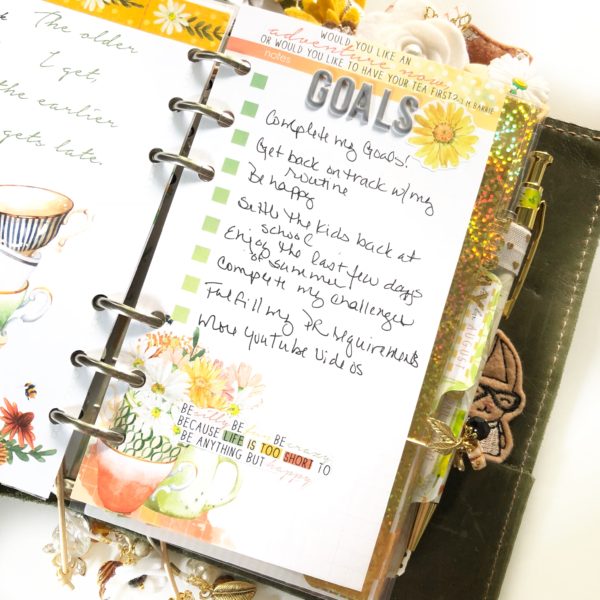 The older
I get,
the earlier
gets late.
WOULD YOU LIKE AN
adventure now,
OR WOULD YOU LIKE TO HAVE YOUR TEA FIRST? J.M. BARRIE
notes
GOALS
Complete my Goals!
Get back on track w/ my
routine
Be happy
Settle the kids back at
school
Enjoy the last few days
of summer
Complete my challenges
Fulfill my PR requirements
More YouTube Videos
BE silly BE fun BE crazy
BECAUSE LIFE IS TOO SHORT TO
BE ANYTHING BUT happy
AUGUST